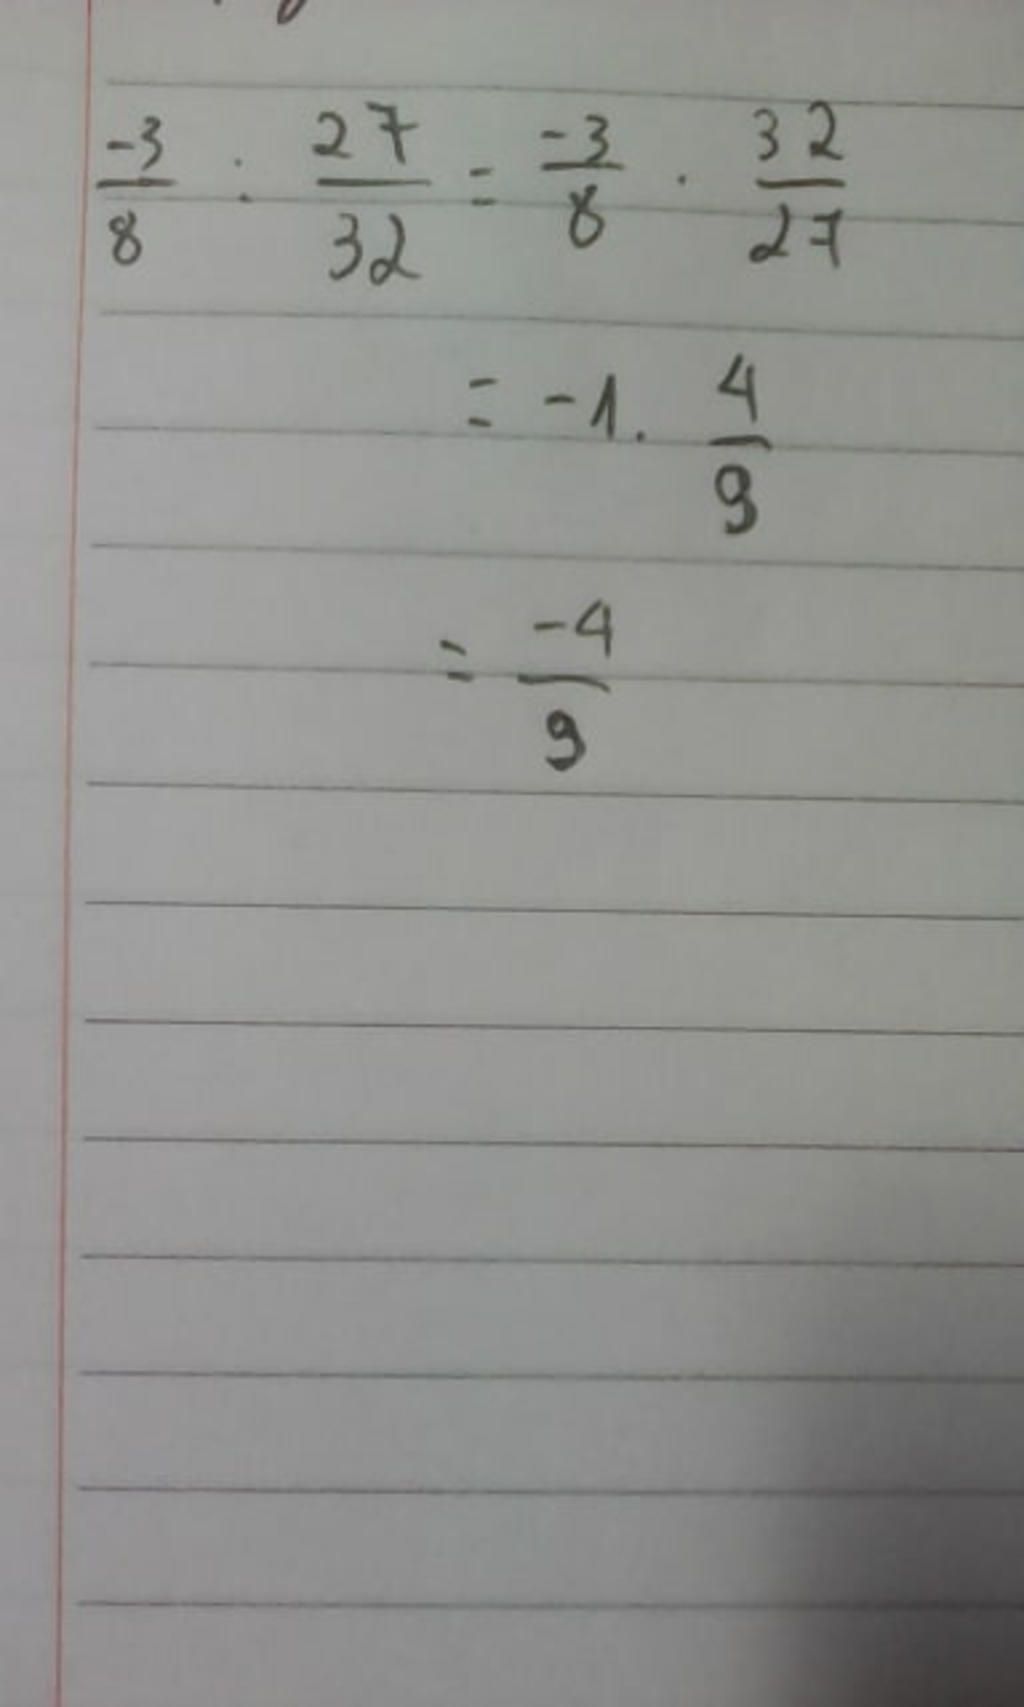 -3/8 : 27/32 = -3/8 . 32/27
= -1 . 4/9
= -4/9